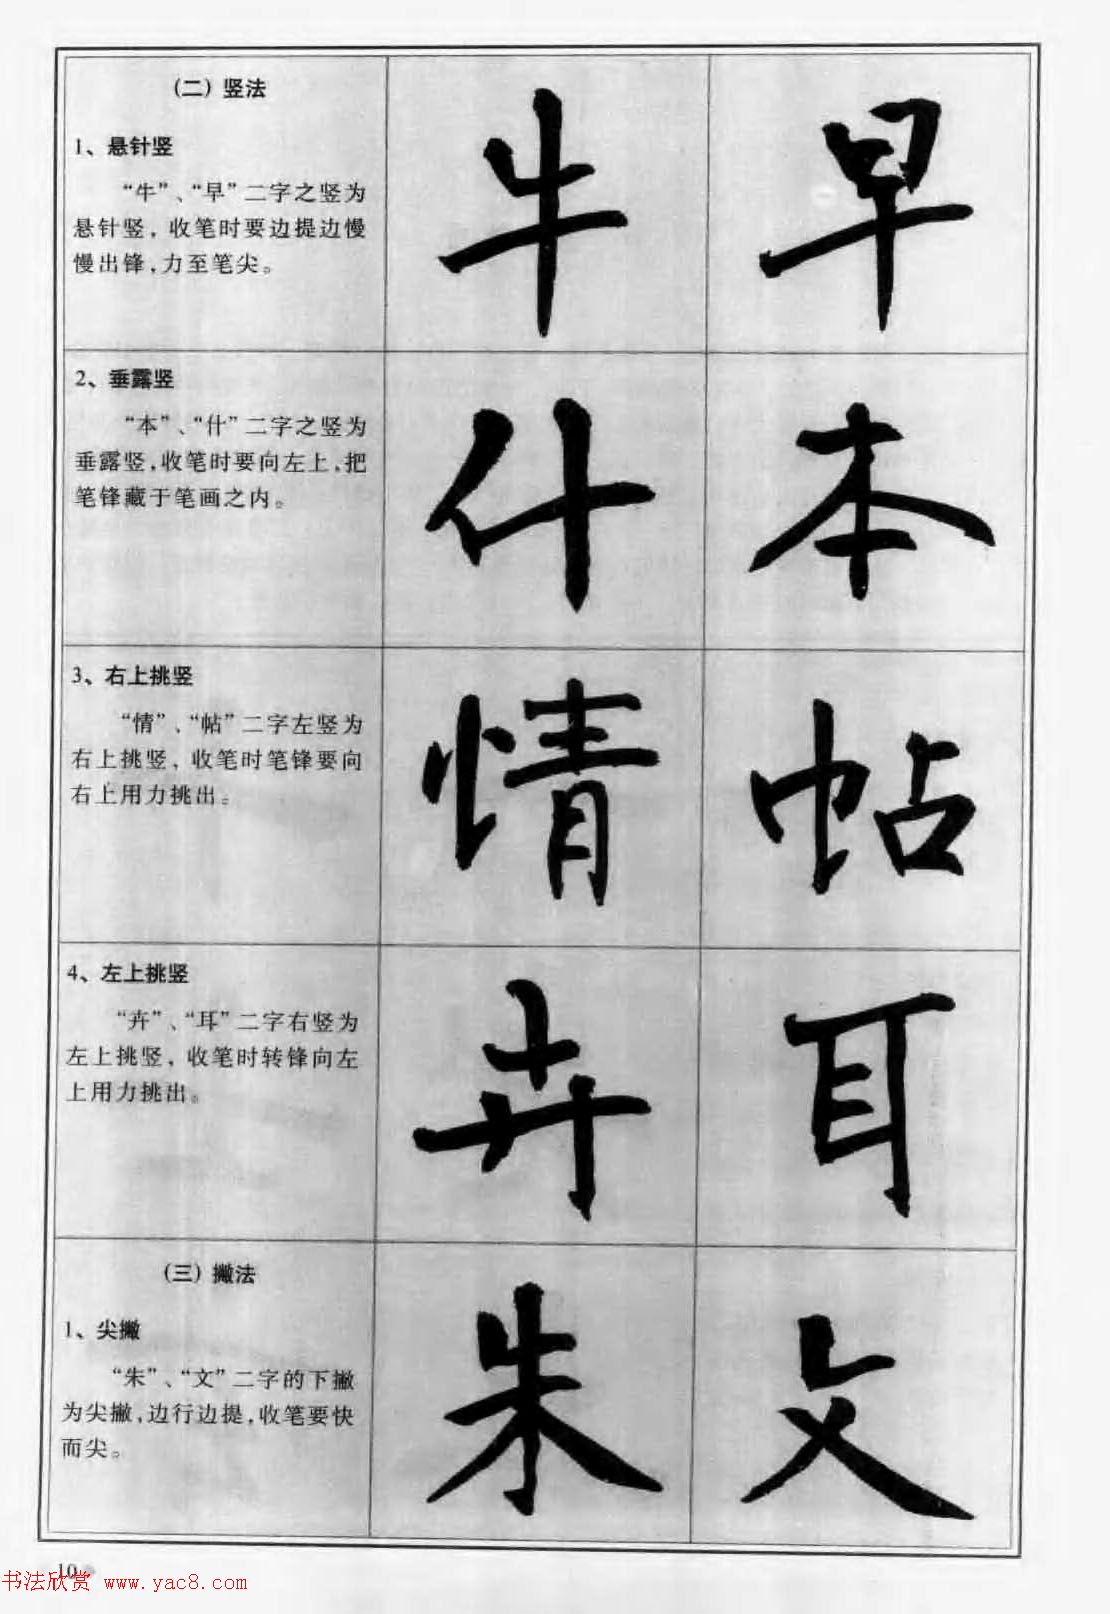 （二）竖法
1、悬针竖
“牛”、“早”二字之竖为
悬针竖，收笔时要边提边慢
慢出锋，力至笔尖。
牛 早
2、垂露竖
“本”、“什”二字之竖为
垂露竖，收笔时要向左上，把
笔锋藏于笔画之内。
什 本
3、右上挑竖
“情”、“帖”二字左竖为
右上挑竖，收笔时笔锋要向
右上用力挑出。
情 帖
4、左上挑竖
“卉”、“耳”二字右竖为
左上挑竖，收笔时转锋向左
上用力挑出。
卉 耳
（三）撇法
1、尖撇
“朱”、“文”二字的下撇
为尖撇，边行边提，收笔要快
而尖。
朱 文
10
书法欣赏 www.yac8.com